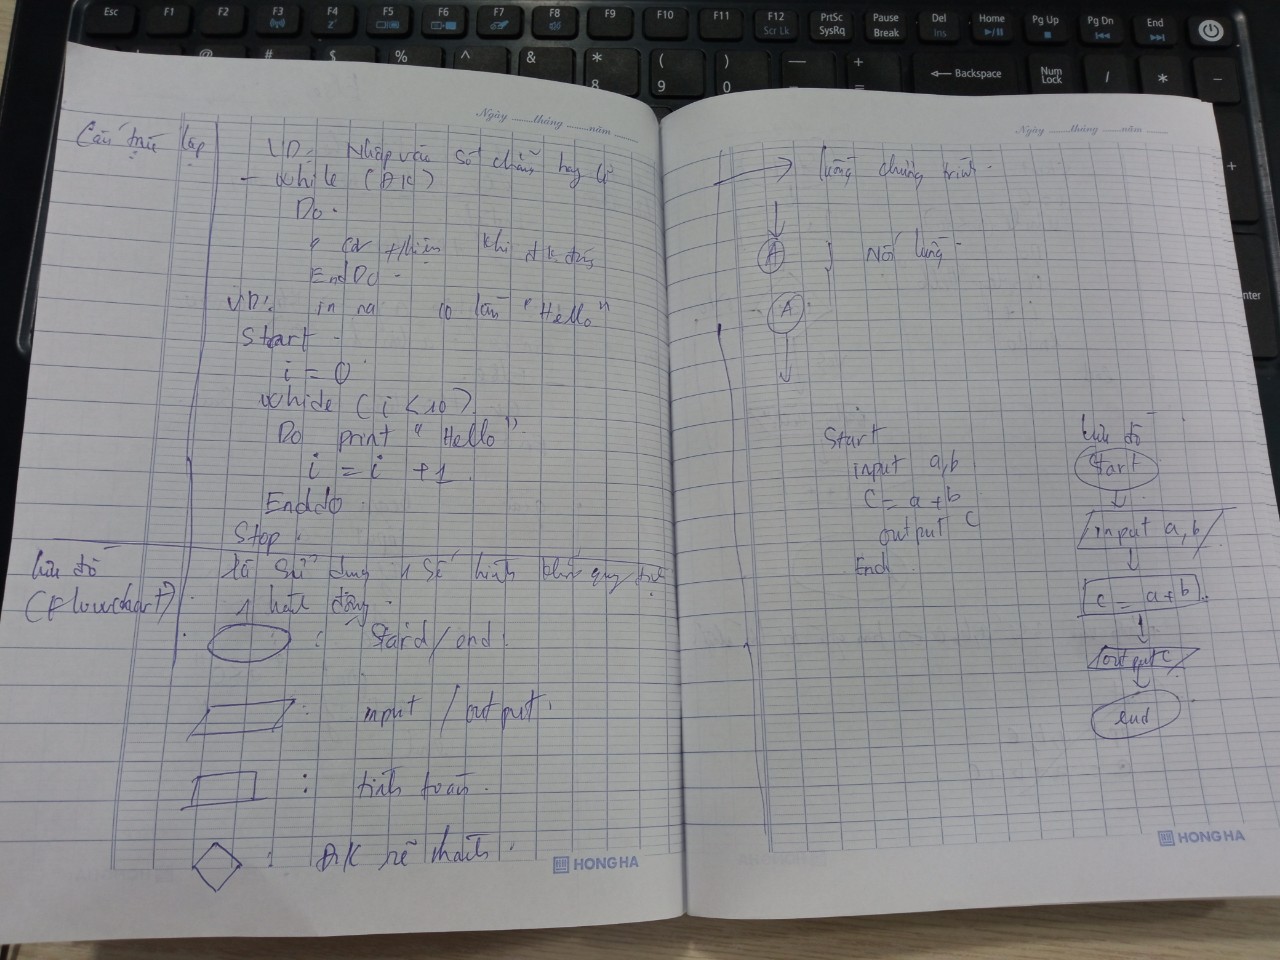 Esc F1 F2 F3 F4 F5 F6 F7 F8 F9 F10 F11 F12 Scr Lk PrtSc SysRq Pause Break Del Ins Home Pg Up Pg Dn End
@ # $ % ^ & * 8 ( 9 ) 0 — + = Backspace Num Lock / * –
Ngày tháng năm
Cấu trúc lặp
VD: Nhập vào số chẵn hay lẻ
- While (ĐK)
Do.
thiện khi đk đúng
EndDo -
VD: in ra 10 lần "Hello"
Start -
i = 0
While (i < 10)
Do print "Hello"
i = i + 1
Enddo
Stop.
lưu đồ
(Flowchart)
là sử dụng 1 số hình khối quy định
1 hành động.
: Stard/end.
: input / output.
: tính toán.
: ĐK rẽ nhánh.
HONG HA
Ngày tháng năm
luồng chương trình -
A } Nối luồng -
A
Start
input a,b
C = a + b
output C
End
lưu đồ
Start
input a, b
c = a + b
output c
end
HONG HA
+
nter